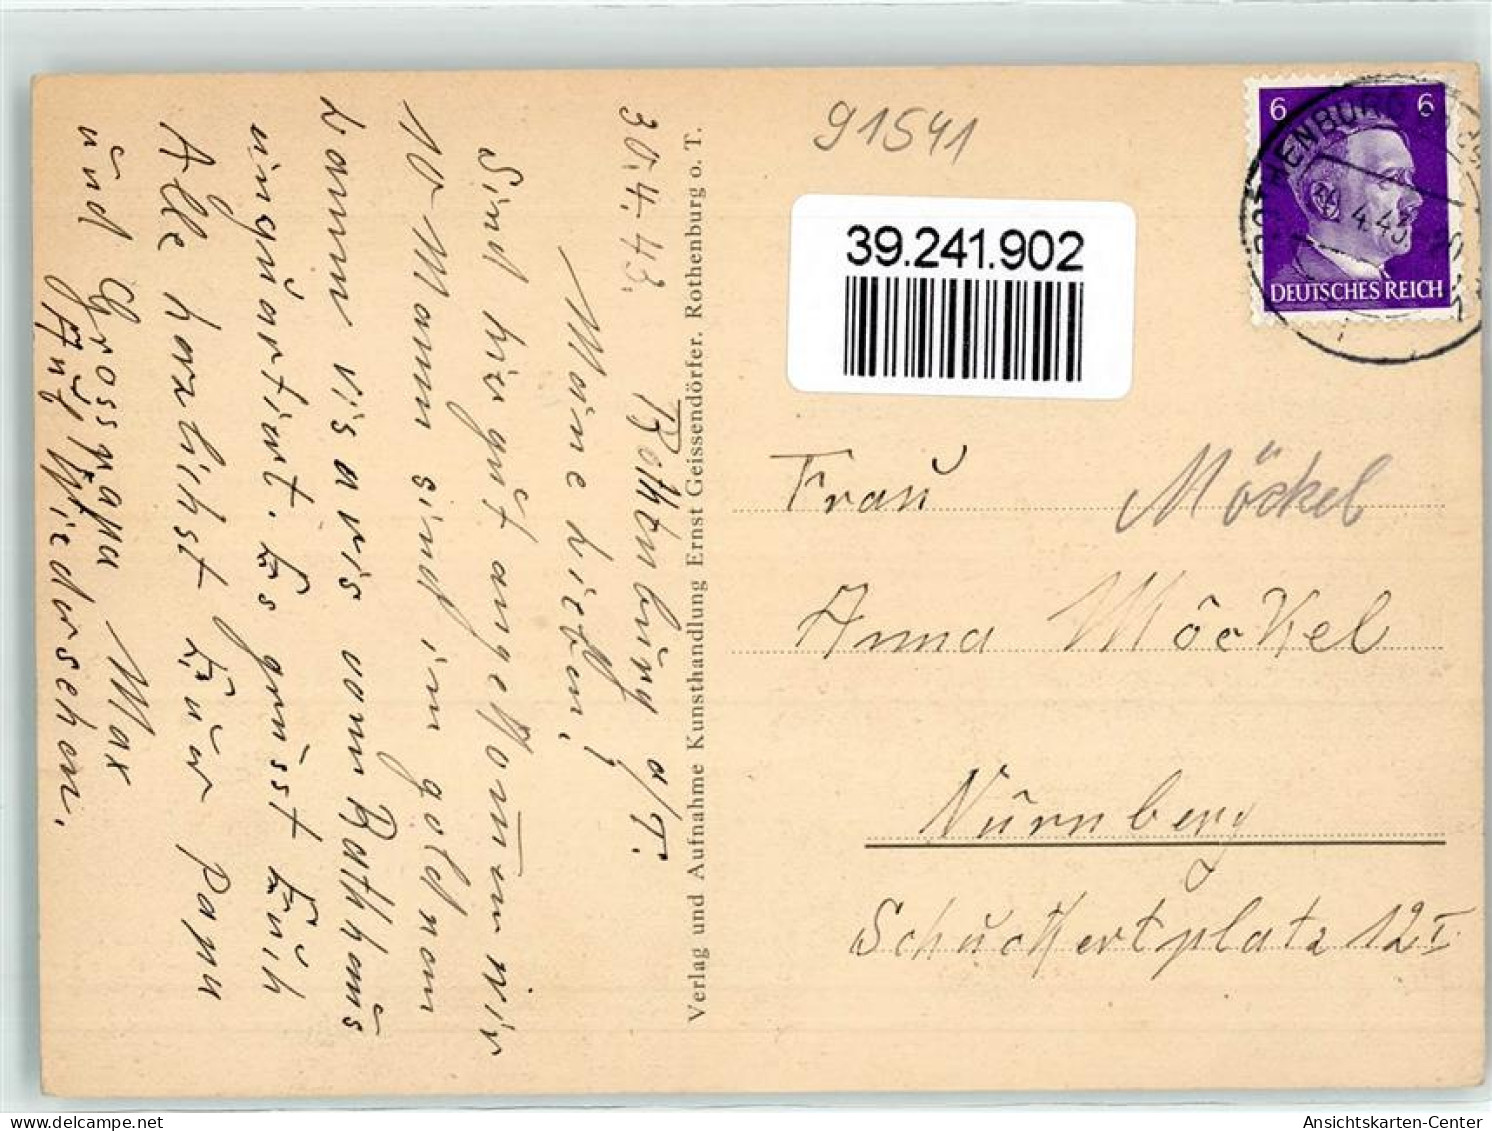 91541
39.241.902
6 6
DEUTSCHES REICH
ROTHENBURG
30.4.43. Rothenburg o/T.
Meine Lieben!
Sind hier gut angekommen wir
10 Mann sind im goldnen
Lamm visavis vom Rathaus
einquartiert. Es grüsst Euch
Alle herzlichst Euer Papa
und Grosspapa Max
Auf Wiedersehen.
Verlag und Aufnahme Kunsthandlung Ernst Geissendörfer, Rothenburg o. T.
Frau Möckel
Anna Möckel
Nürnberg
Schuckertplatz 12 I
Ansichtskarten-Center